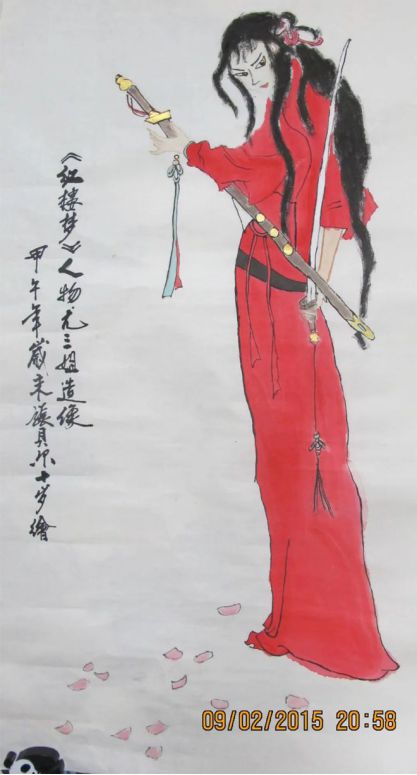 《红楼梦》人物尤三姐造像
甲午年岁末
十岁绘
09/02/2015 20:58